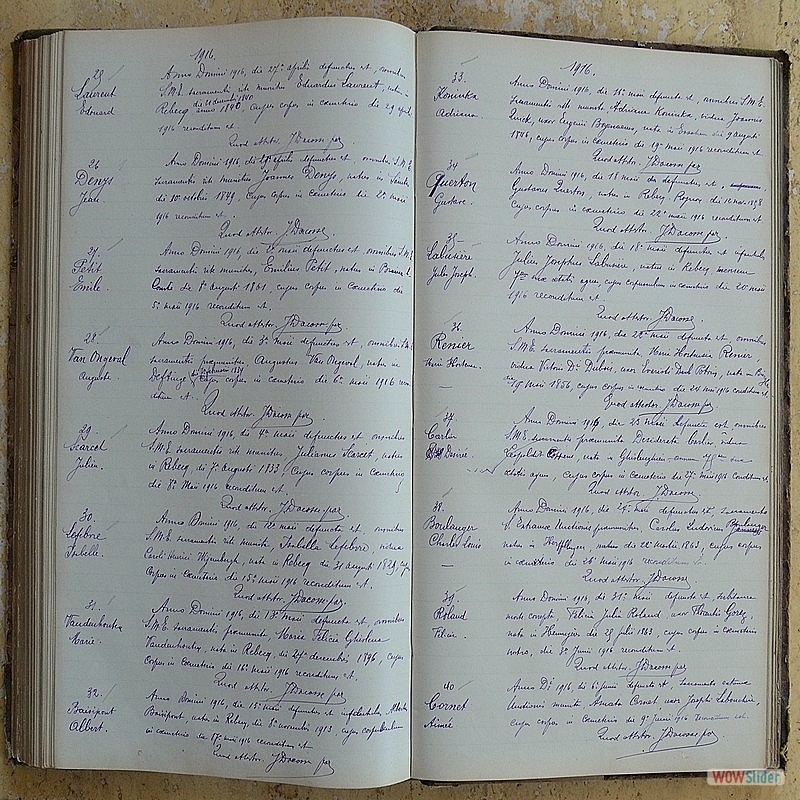 1916.
25
Laurent
Edouard
Anno Domini 1916, die 27ª aprilis defunctus est, omnibus
S.M.E. sacramentis rite munitus Eduardus Laurent, natus in
Rebecq anno 1840, cujus corpus in cœmeterio die 29 aprilis
1916 reconditum est.
Quod attestor. J Dacosse par
26
Denys
Jean.
Anno Domini 1916, die aprilis defunctus est omnibus S.M.E.
sacramentis rite munitus Joannes Denys, natus in
die 10ª octobris 1849, cujus corpus in cœmeterio die 2ª maii
1916 reconditum est.
Quod attestor. J Dacosse.
27
Petit
Emile.
Anno Domini 1916, die 2ª maii defunctus est omnibus S.M.E.
sacramentis rite munitus, Emilius Petit, natus in Braine le
Comte die 8ª augusti 1861, cujus corpus in cœmeterio die
5ª maii 1916 reconditum est.
Quod attestor. J Dacosse par
28.
Van Ongeval
Auguste.
Anno Domini 1916, die 3ª maii defunctus est, omnibus S.M.E.
sacramentis præmunitus Augustus Van Ongeval, natus in
Deftinge cujus corpus in cœmeterio die 6ª maii 1916 recon
ditum est.
Quod attestor. J Dacosse par
29.
Scarcet
Julien.
Anno Domini 1916, die 4ª maii defunctus est, omnibus
S.M.E. sacramentis rite munitus, Julianus Scarcet, natus
in Rebecq die 7ª augusti 1833 cujus corpus in cœmeterio
die 8ª Maii 1916 reconditum est.
Quod attestor. J Dacosse par
30.
Lefebvre
Isabelle.
Anno Domini 1916, die 12ª maii defuncta est omnibus
S.M.E. sacramentis rite munita, Isabella Lefebvre, vidua
nata in Rebecq die 31 augusti 1829, cujus
Corpus in cœmeterio die 15ª maii 1916 reconditum est.
Quod attestor. J Dacosse par.
31.
Vandenhouten
Marie.
Anno Domini 1916, die 13ª maii defuncta est, omnibus
S.M.E. sacramentis præmunita Maria Felicia Ghislena
Vandenhouten, nata in Rebecq die 29ª decembris 1896, cujus
Corpus in cœmeterio die 16ª maii 1916 reconditum est.
Quod attestor. J Dacosse par
32.
Baisipont
Albert.
Anno Domini 1916, die 15ª maii defunctus est infantulus Albertus
Baisipont, natus in Rebecq die 8ª novembris 1913, cujus corpusculum
in cœmeterio die 17ª maii 1916 reconditum est
Quod attestor J Dacosse par
1916.
33.
Koninka
Adriana.
Anno Domini 1916, die 16ª maii defuncta est, omnibus S.M.E.
sacramentis rite munita, Adriana Koninka, vidua Joannis
uxor Eugenii nata in die 9 augusti
1846, cujus corpus in cœmeterio die 19ª maii 1916 reconditum est.
Quod attestor. J Dacosse par
34
Querton
Gustave.
Anno Domini 1916, die 18 maii defunctus est,
Gustavus Querton, natus in Rebecq Rognon die 10 nov. 1898
cujus corpus in cœmeterio die 22ª maii 1916 reconditum est
Quod attestor. J Dacosse par
35
Labusière
Jules Joseph.
Anno Domini 1916, die 18ª maii defunctus est infantulus
Julius Josephus Labusière, natus in Rebecq mensem
7um suæ ætatis agens, cujus corpusculum in cœmeterio die 20 maii
1916 reconditum est.
Quod attestor. J Dacosse
36
Renier
Marie Hortense.
Anno Domini 1916, die 22ª maii defuncta est, omnibus
S.M.E. sacramentis præmunita Maria Hortensia Renier,
vidua Victoris Dubois, nata in
1856, cujus corpus in cœmeterio die 24 maii 1916 conditum est
Quod attestor J Dacosse par
37
Carlier
Désirée.
Anno Domini 1916, die 25ª maii defuncta est omnibus
S.M.E. sacramentis præmunita Desiderata Carlier vidua
Leopoldi nata in Ghislenghien annum suæ
ætatis agens, cujus corpus in cœmeterio die 27ª maii 1916 conditum est.
Quod attestor. J Dacosse
38.
Boulanger
Charles Louis
Anno Domini 1916, die 24ª maii defunctus est, sacramento
Extremæ Unctionis præmunitus, Carolus Ludovicus Boulanger
natus in die 22ª 1863, cujus corpus
in cœmeterio die 26ª maii 1916 reconditum est.
Quod attestor. J Dacosse
39.
Roland
Félicie.
Anno Domini 1916, die 31ª maii defuncta est subitanea
morte correpta, Felicia Julia Roland, uxor
nata in Hennuyères die 25 julii 1863, cujus corpus in cœmeterio
nostro, die 3ª Junii 1916 reconditum est.
Quod attestor. J Dacosse par
40
Cornet
Aimée
Anno Di 1916, die 6ª junii defuncta est, sacramento extremæ
Unctionis munita Amata Cornet uxor Josephi
cujus corpus in Cœmeterio die 9ª Junii 1916 reconditum est.
Quod attestor. J Dacosse par
WOWSlider